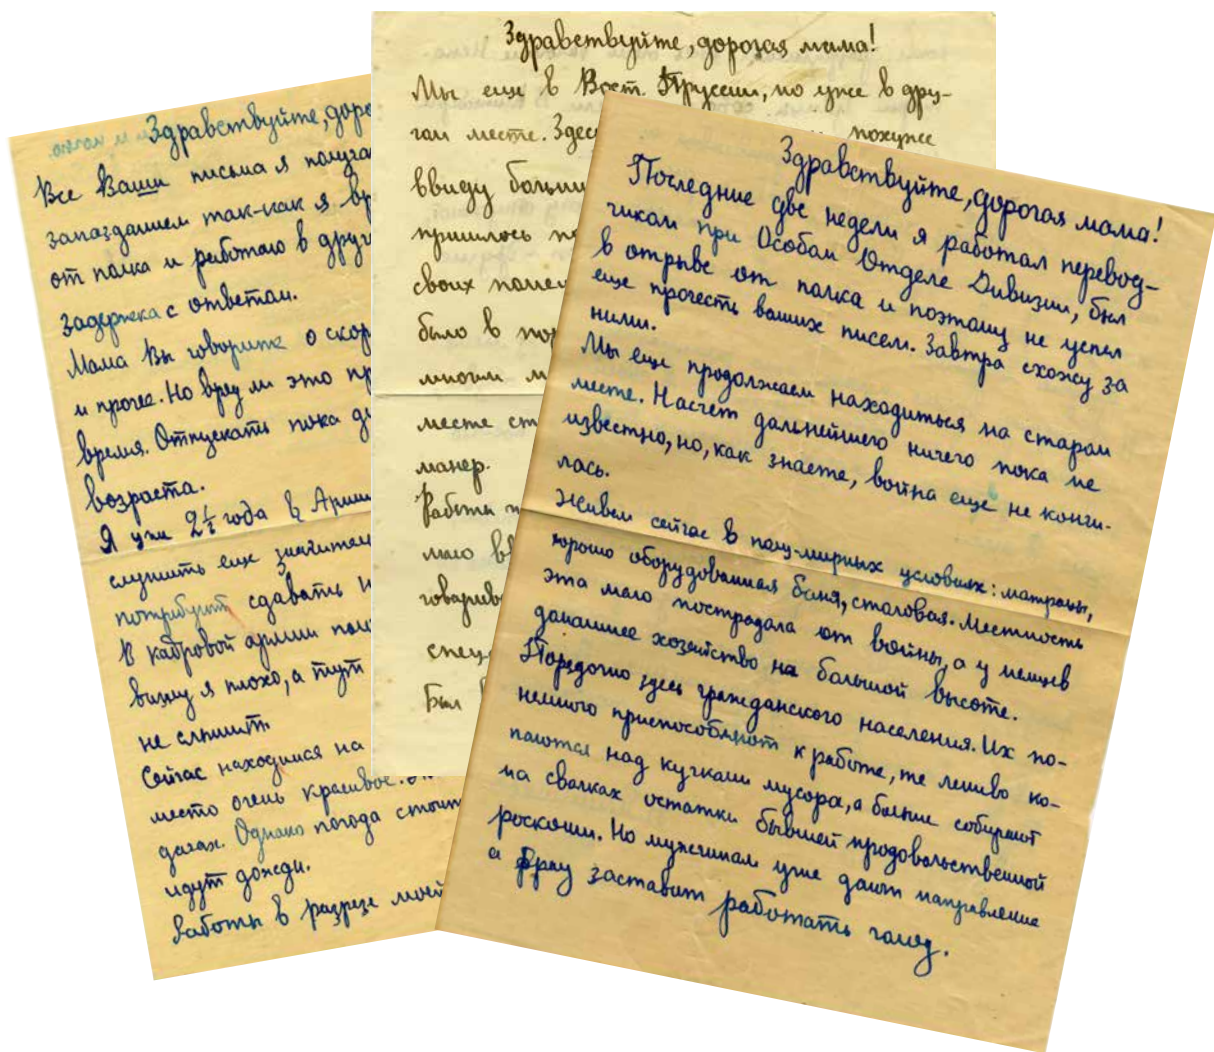 Здравствуйте, доро
Все Ваши письма я получа
запаздашем так-как я вр
от полка и работаю в друг
задержка с ответом.
Мама Вы говорите о скор
и прочее. Но вряд ли это пр
время. Отпускать пока ду
возраста.
Я уже 2½ года в Армии
служить еще значител
потребуют сдавать н
В кадровой армии пол
вижу я плохо, а тут
не слышит
Сейчас находимся на
место очень красивое.
дачах. Однако погода стоит
идут дожди.
Работы в разрезе моей
Здравствуйте, дорогая мама!
Мы еще в Вост. Пруссии, но уже в дру-
гом месте. Здес похуже
ввиду больши
пришлось по
своих помещ
было в пор
многим м
месте ст
манер.
Работы п
мало вв
говарив
спец
Был в
Здравствуйте, дорогая мама!
Последние две недели я работал перевод-
чиком при Особом Отделе Дивизии, был
в отрыве от полка и поэтому не успел
еще прочесть ваших писем. Завтра схожу за
ними.
Мы еще продолжаем находиться на старом
месте. Насчет дальнейшего ничего пока не
известно, но, как знаете, война еще не кончи-
лась.
Живем сейчас в полу-мирных условиях: матрацы,
хорошо оборудованная баня, столовая. Местность
эта мало пострадала от войны, а у немцев
домашнее хозяйство на большой высоте.
Порядочно здесь гражданского населения. Их по-
немного приспособляют к работе, те лениво ко-
паются над кучками мусора, а больше собирают
на свалках остатки бывшей продовольственной
роскоши. Но мужчинам уже дают направление
а фрау заставит работать голод.